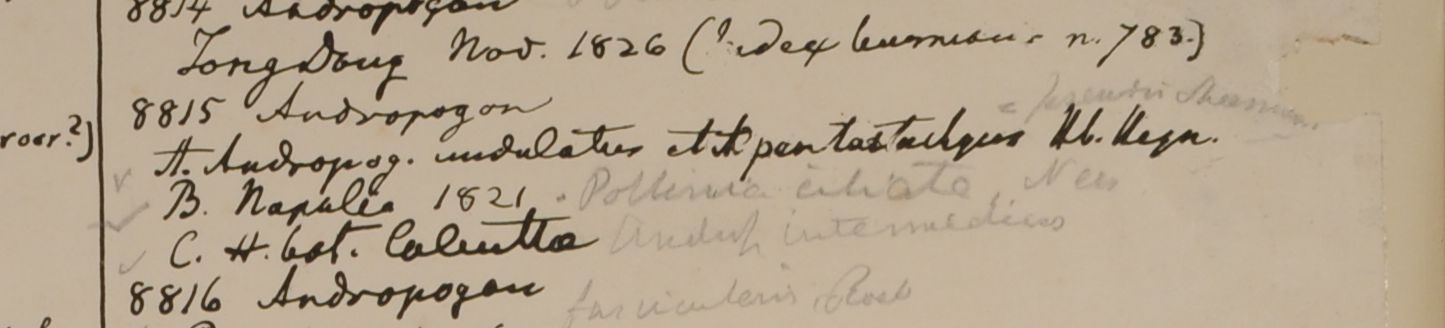 8814 Andropogon
TongDong Nov. 1826 (Index burman. n. 783.)
8815 Andropogon
roxr.?)
A. Andropog. undulatus et A pentastachyus Hb. Heyn.
B. Napalia 1821 Pollinia ciliata Nees
C. H. bot. Calcutta Androp intermedius
8816 Andropogon fascicularis Roxb